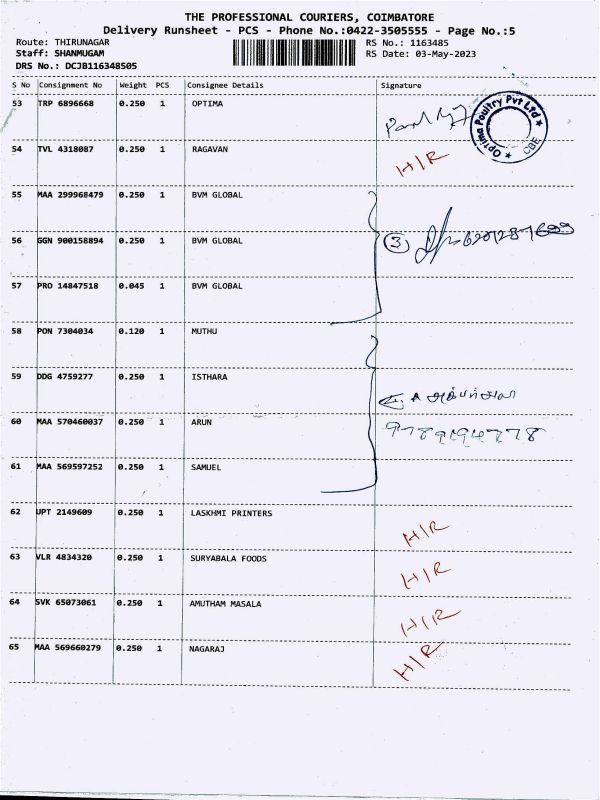 THE PROFESSIONAL COURIERS, COIMBATORE
Delivery Runsheet - PCS - Phone No.:0422-3505555 - Page No.:5
Route: THIRUNAGAR RS No.: 1163485
Staff: SHANMUGAM RS Date: 03-May-2023
DRS No.: DCJB116348505
S No Consignment No Weight PCS Consignee Details Signature
53 TRP 6896668 0.250 1 OPTIMA
Optima Poultry Pvt Ltd ★ CBE ★
54 TVL 4318087 0.250 1 RAGAVAN H/R
55 MAA 299968479 0.250 1 BVM GLOBAL
56 GGN 900158894 0.250 1 BVM GLOBAL ③
57 PRO 14847518 0.045 1 BVM GLOBAL
58 PON 7304034 0.120 1 MUTHU
59 DDG 4759277 0.250 1 ISTHARA
60 MAA 570460037 0.250 1 ARUN
61 MAA 569597252 0.250 1 SAMUEL
62 UPT 2149609 0.250 1 LASKHMI PRINTERS H/R
63 VLR 4834320 0.250 1 SURYABALA FOODS H/R
64 SVK 65073061 0.250 1 AMUTHAM MASALA H/R
65 MAA 569660279 0.250 1 NAGARAJ H/R